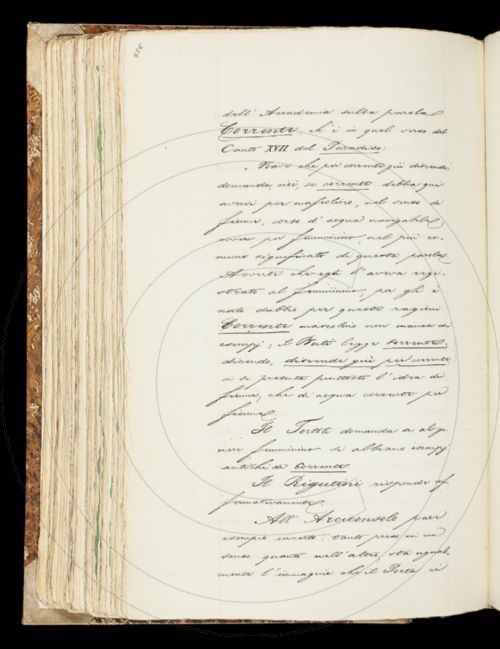 dell' Accademia sulla parola
Corrente, ch' è in quel verso del
Canto XVII del Paradiso:
Nave che per corrente giù discende;
domanda, cioè, se corrente debba qui
aversi per mascolino, nel senso di
fiume, corso d' acqua navigabile,
ovvero per femminino, nel più co-
mune significato di questa parola.
Avverte che egli l' aveva regi-
strato al femminino, ma gli è
nato dubbio per queste ragioni
Corrente mascolino non manca di
esempj; il Buti legge torrente;
dicendo, discende giù per corrente
ci si presenta piuttosto l' idea di
fiume, che di acqua corrente per
fiume.
Il Tortoli domanda se al ge-
nere femminino si abbiano esempj
antichi di corrente.
Il Rigutini risponde af-
fermativamente.
All' Arciconsolo pare
esempio incerto; tanto preso in un
senso quanto nell' altro, sta ugual-
mente l' immagine che il Poeta ci